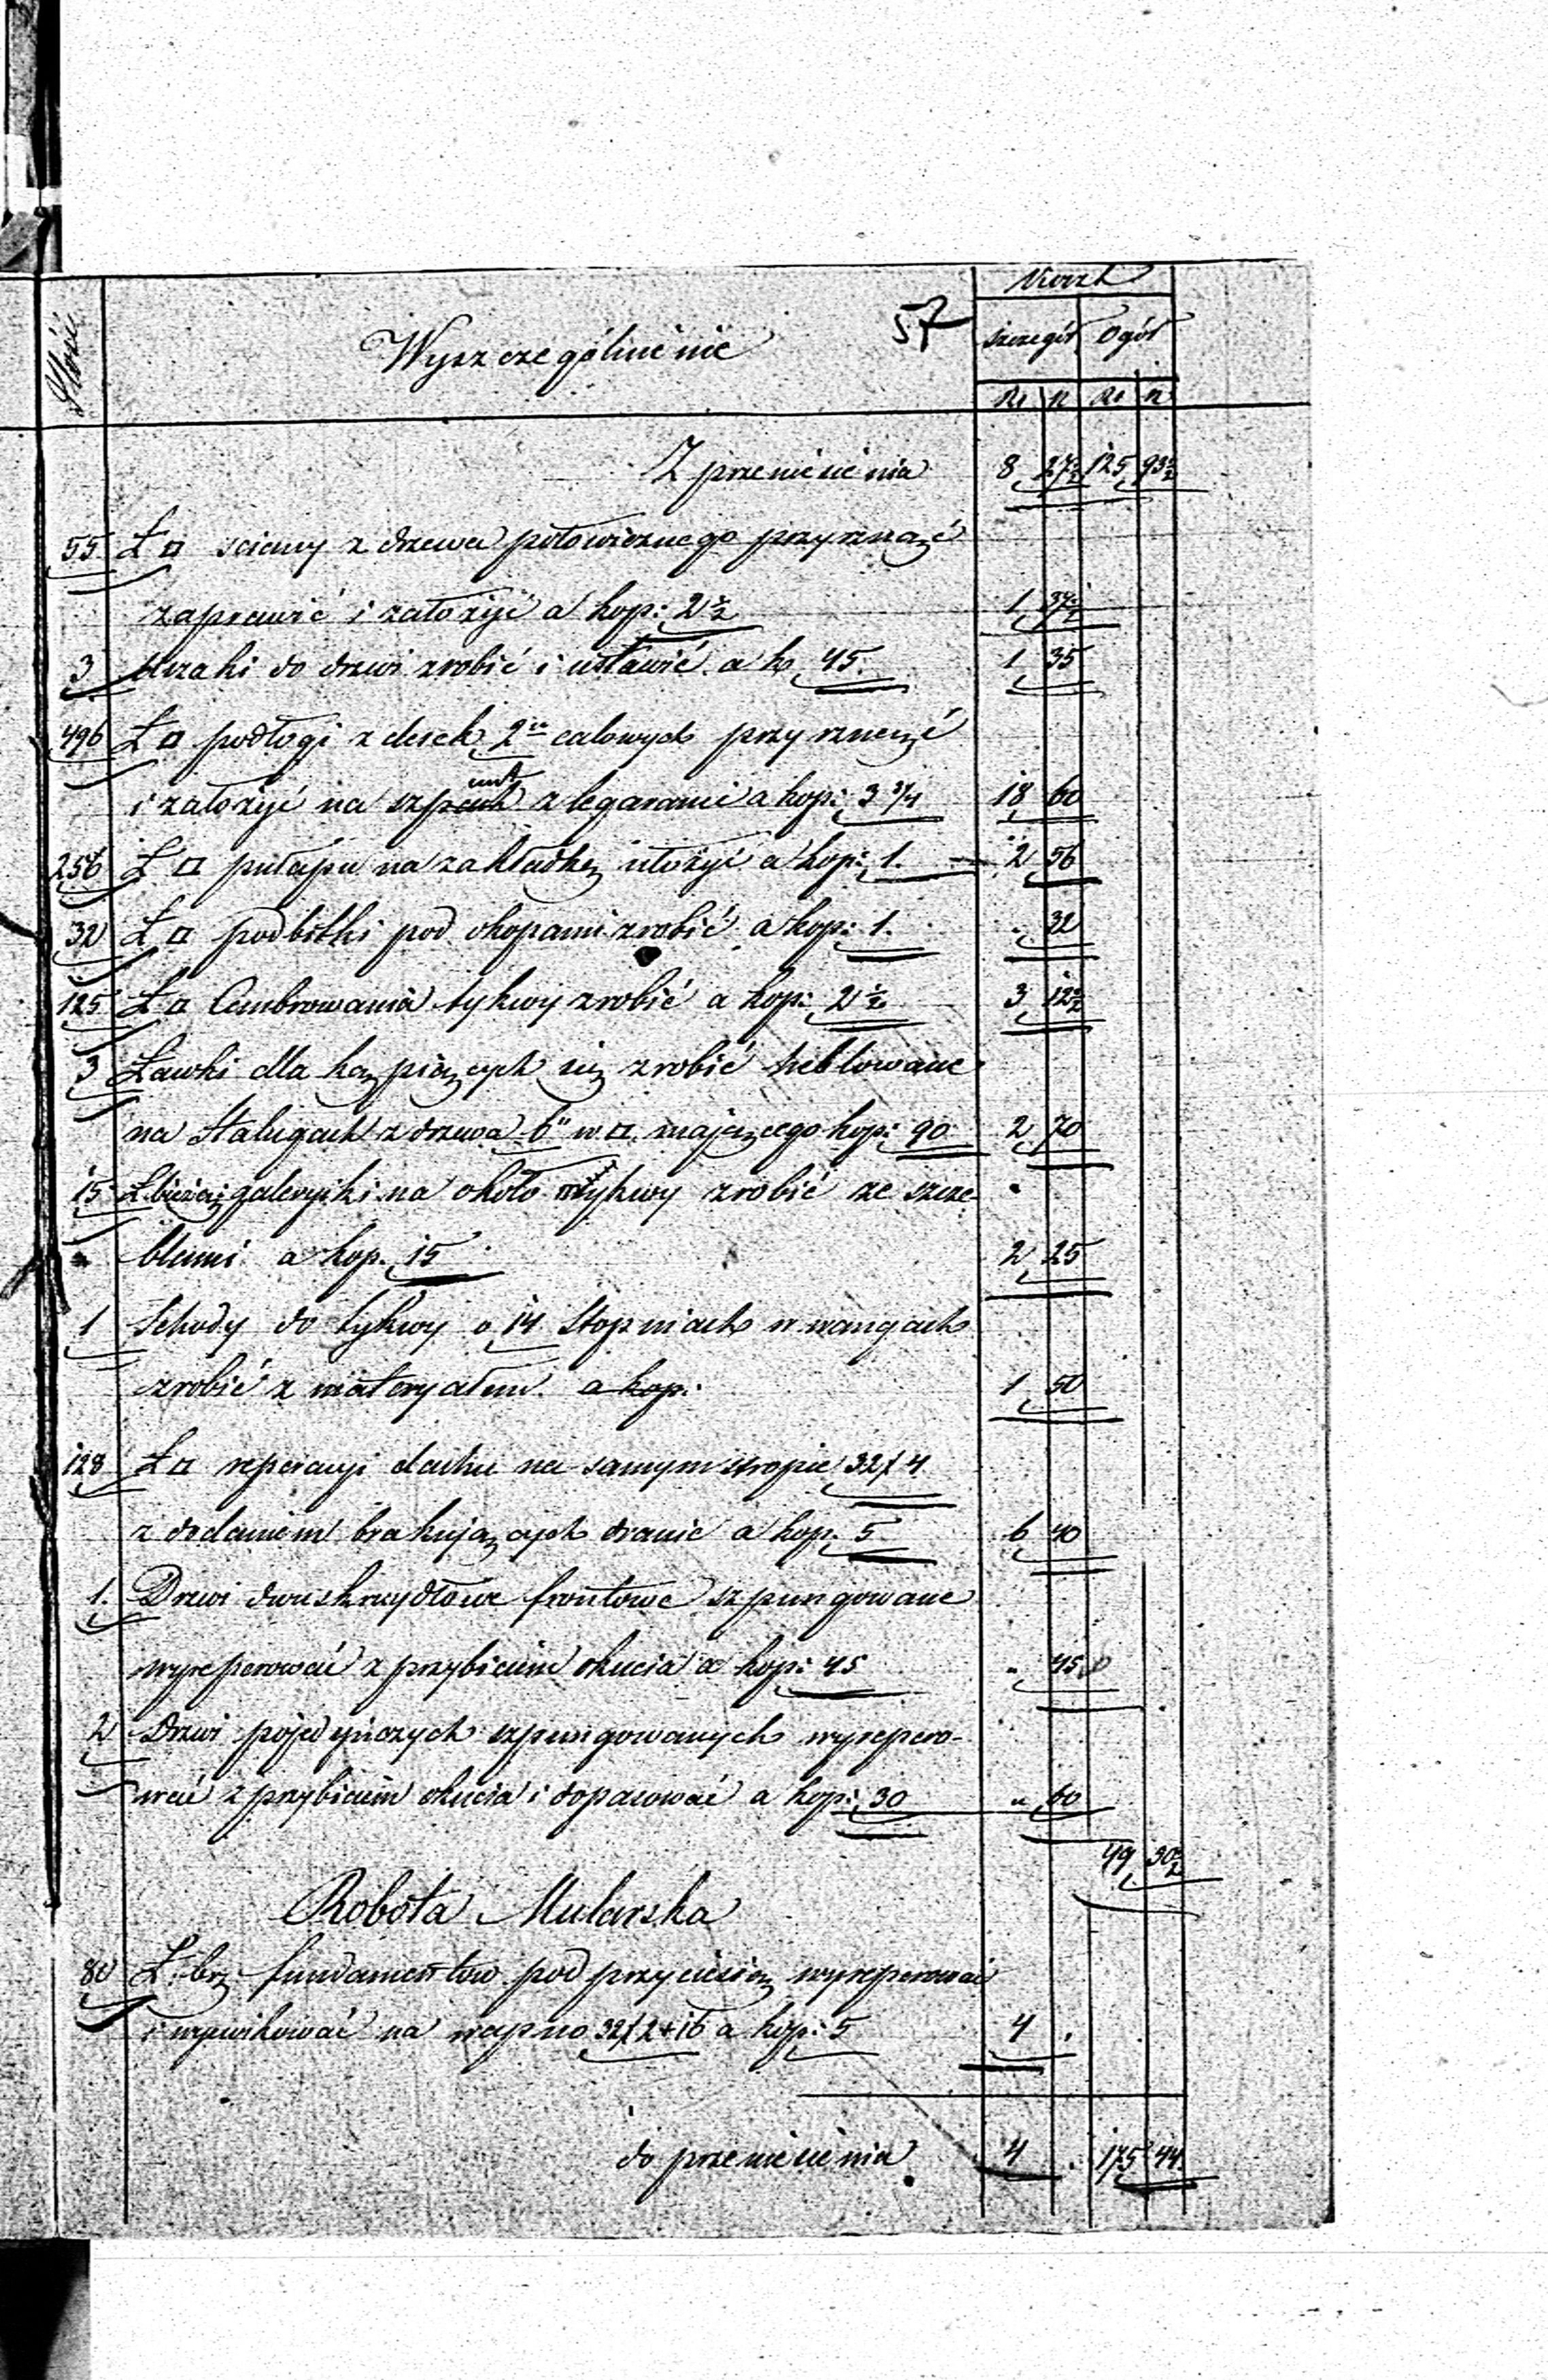 Koszt
57
Ilość Wyszczególnienie szczegół Ogół
Rs k Rs k
Z przeniesienia 8 27½ 125 93½
55 Ł□ sciany z drzewa połowicznego przyrznąć
zaprawić i założyć a kop: 2½ 1 37½
3 Uszaki do drzwi zrobić i wstawić a k 45. 1 35
496 Ł□ podłogi z desek 2" calowych przyrznąć
i założyć na szpunt z legarami a kop: 3¾ 18 60
256 Ł□ pułapu na zakładkę ułożyć a kop: 1. 2 56
32 Ł□ podbitki pod okopami zrobić a kop: 1. " 32
125 Ł□ Cembrowania tykwy zrobić a kop: 2½ 3 12½
3 Ławki dla kąpiących się zrobić heblowane
na Stalugach z drzewa 6" w □ mającego kop: 90 2 70
15 Ł bieżącej galeryjki na około tykwy zrobić ze szcze-
blami a kop. 15 2 25
1 Schody do tykwy o 14 Stopniach w wangach
zrobić z materyałem a kop: 1 50
128 Ł□ reperacyi dachu na samym stropie 32/4
z dodaniem brakujących dranic a kop. 5 6 40
1. Drzwi dwuskrzydłowe frontowe szpungowane
wyreperować z przybiciem okucia a kop: 45 " 45
2 Drzwi pojedyńczych szpungowanych wyrepero-
wać z przybiciem okucia i dopasować a kop: 30 " 60
49 50½
Robota Mularska
80 Ł. bż. fundamentow pod przyciesią wyreperować
i wycwikować na wapno 32/2+16 a kop: 5 4 .
do przeniesienia 4 . 175 44